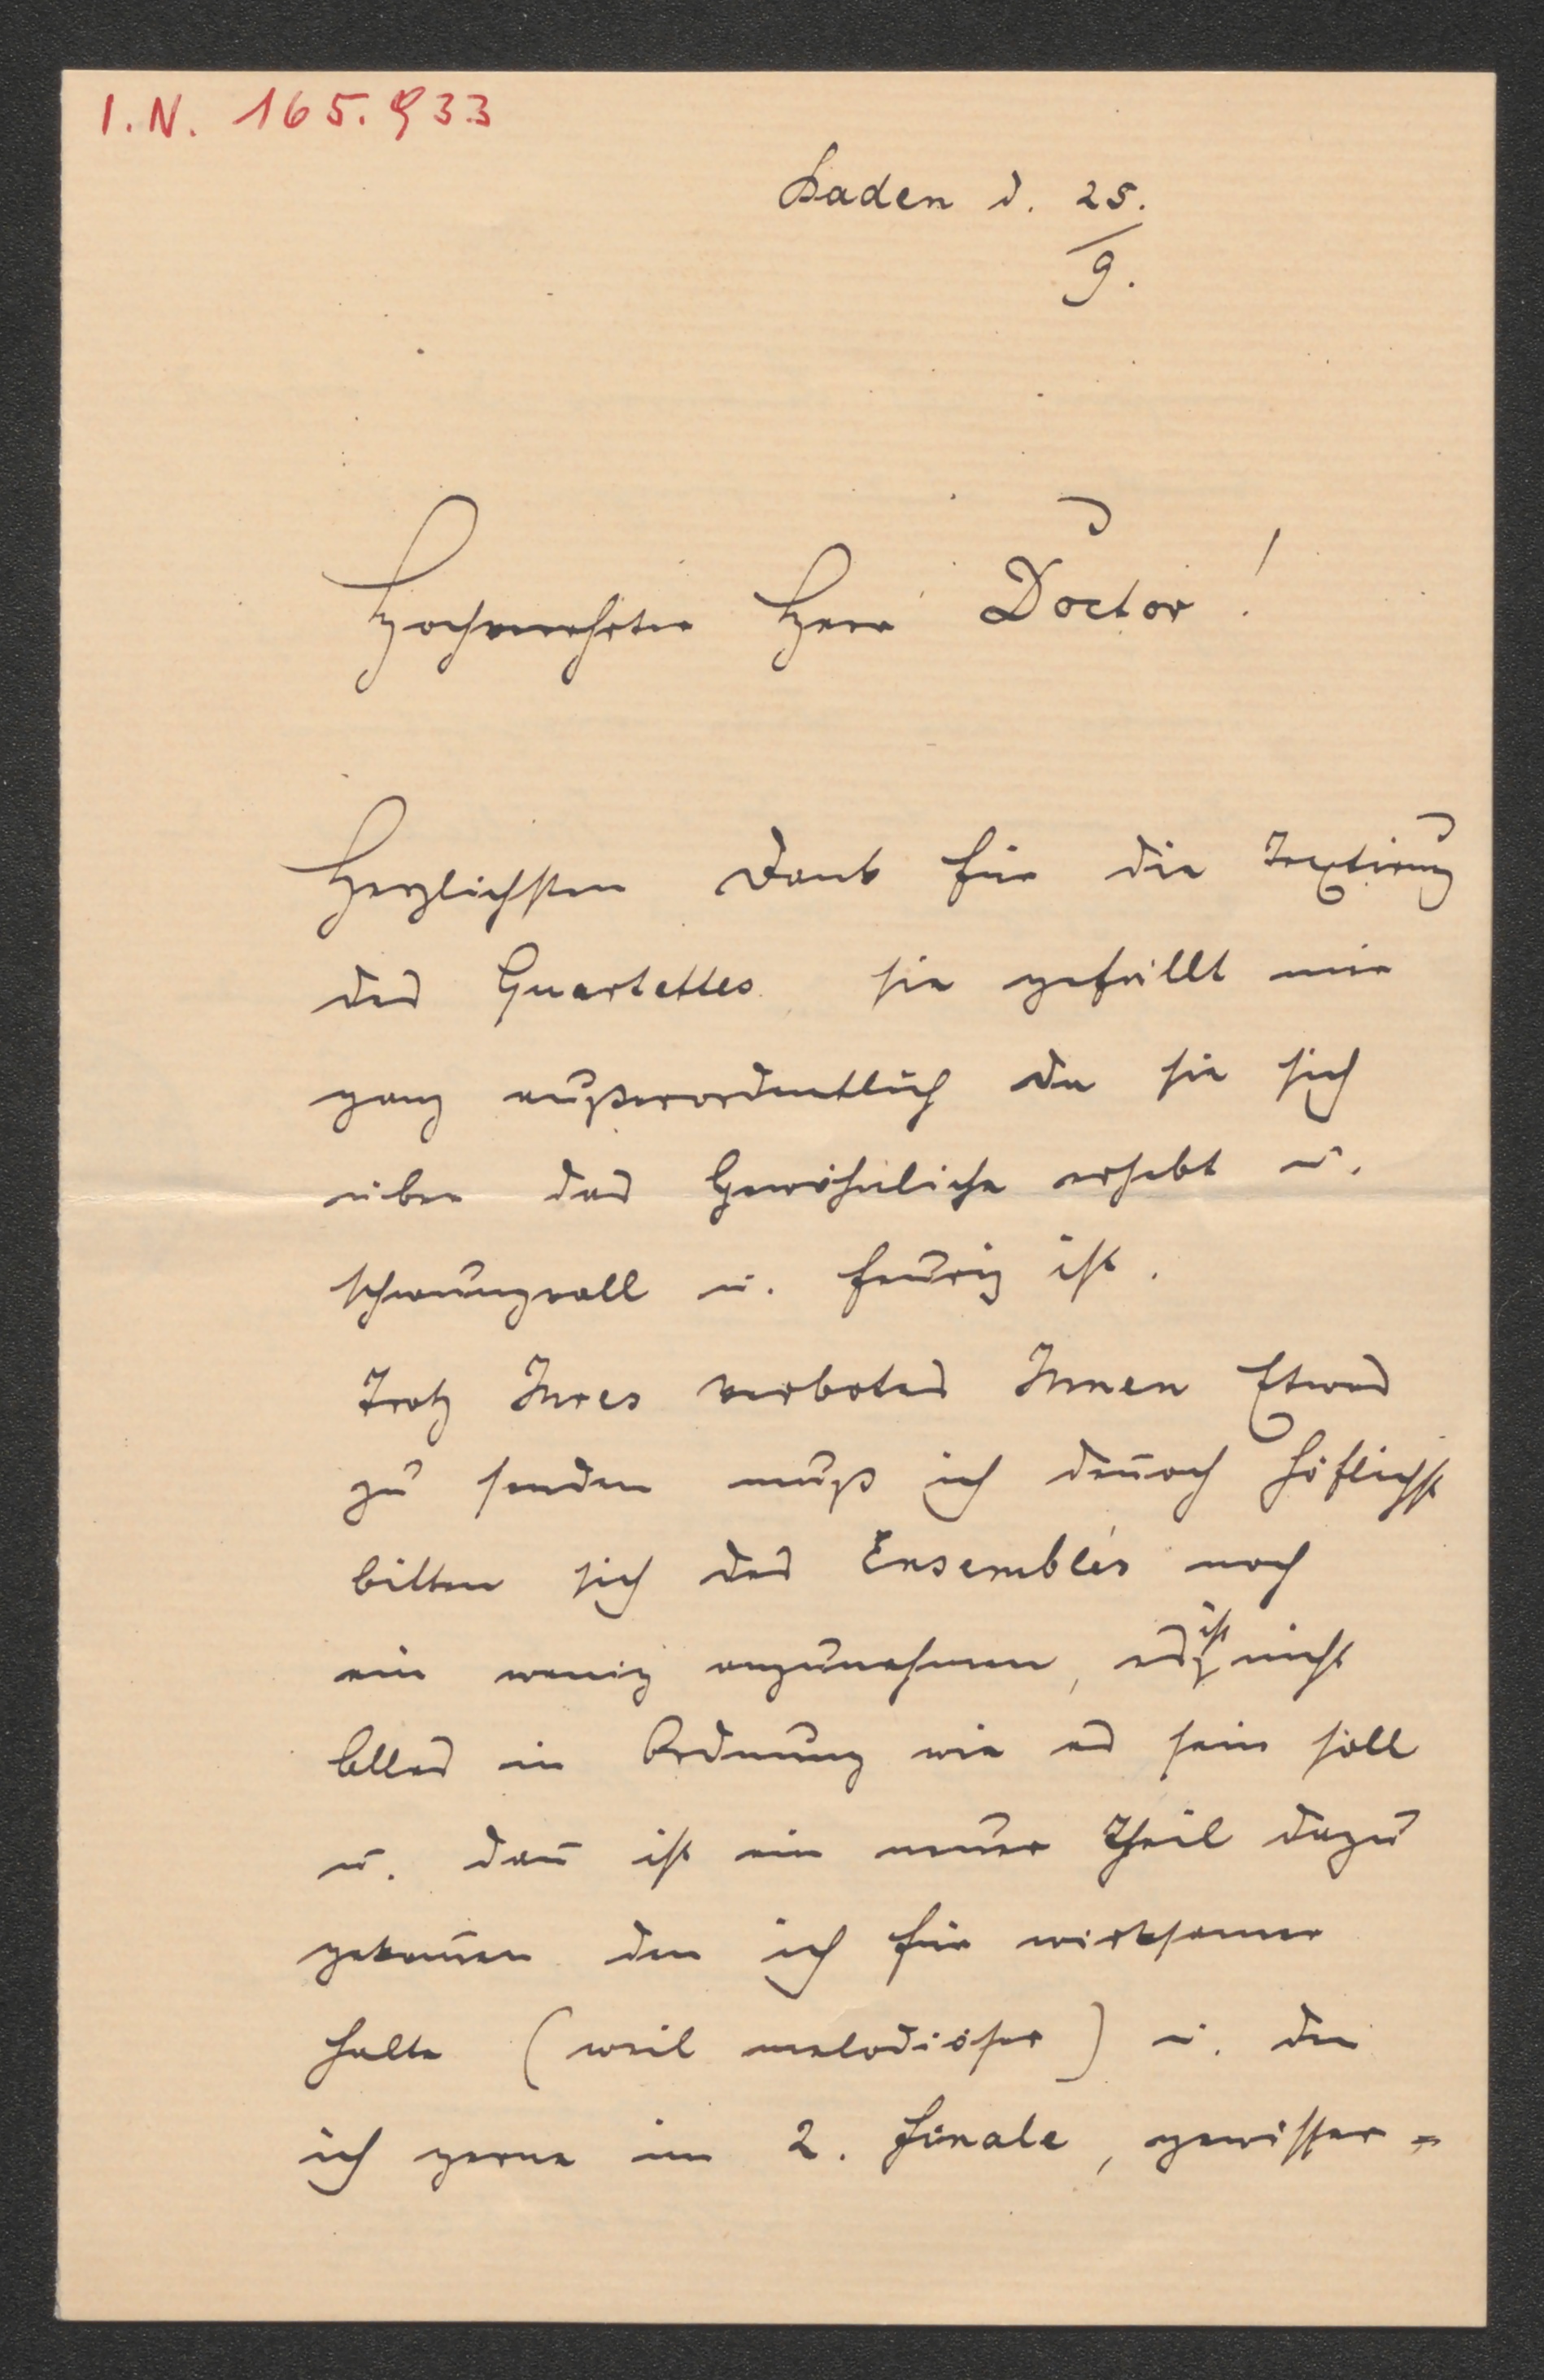 I.N. 165.933
Baden d. 25.
9.
Hochverehrter Herr Doctor!
Herzlichsten Dank für die Textirung
des Quartettes sie gefällt mir
ganz außerordentlich da sie sich
über das Gewöhnliche erhebt u.
schwungvoll u. feurig ist.
Trotz Ihres verbotes Ihnen Etwas
zu senden muß ich den̅och höflichst
bitten sich des Ensembles noch
ein wenig anzunehmen, es ist nicht
Alles in Ordnung wie es sein soll
u. dan̅ ist ein neuer Theil dazu
gekom̅en den ich für wirksamer
halte (weil melodiöser) u. den
ich gerne im 2. Finale, gewisser=